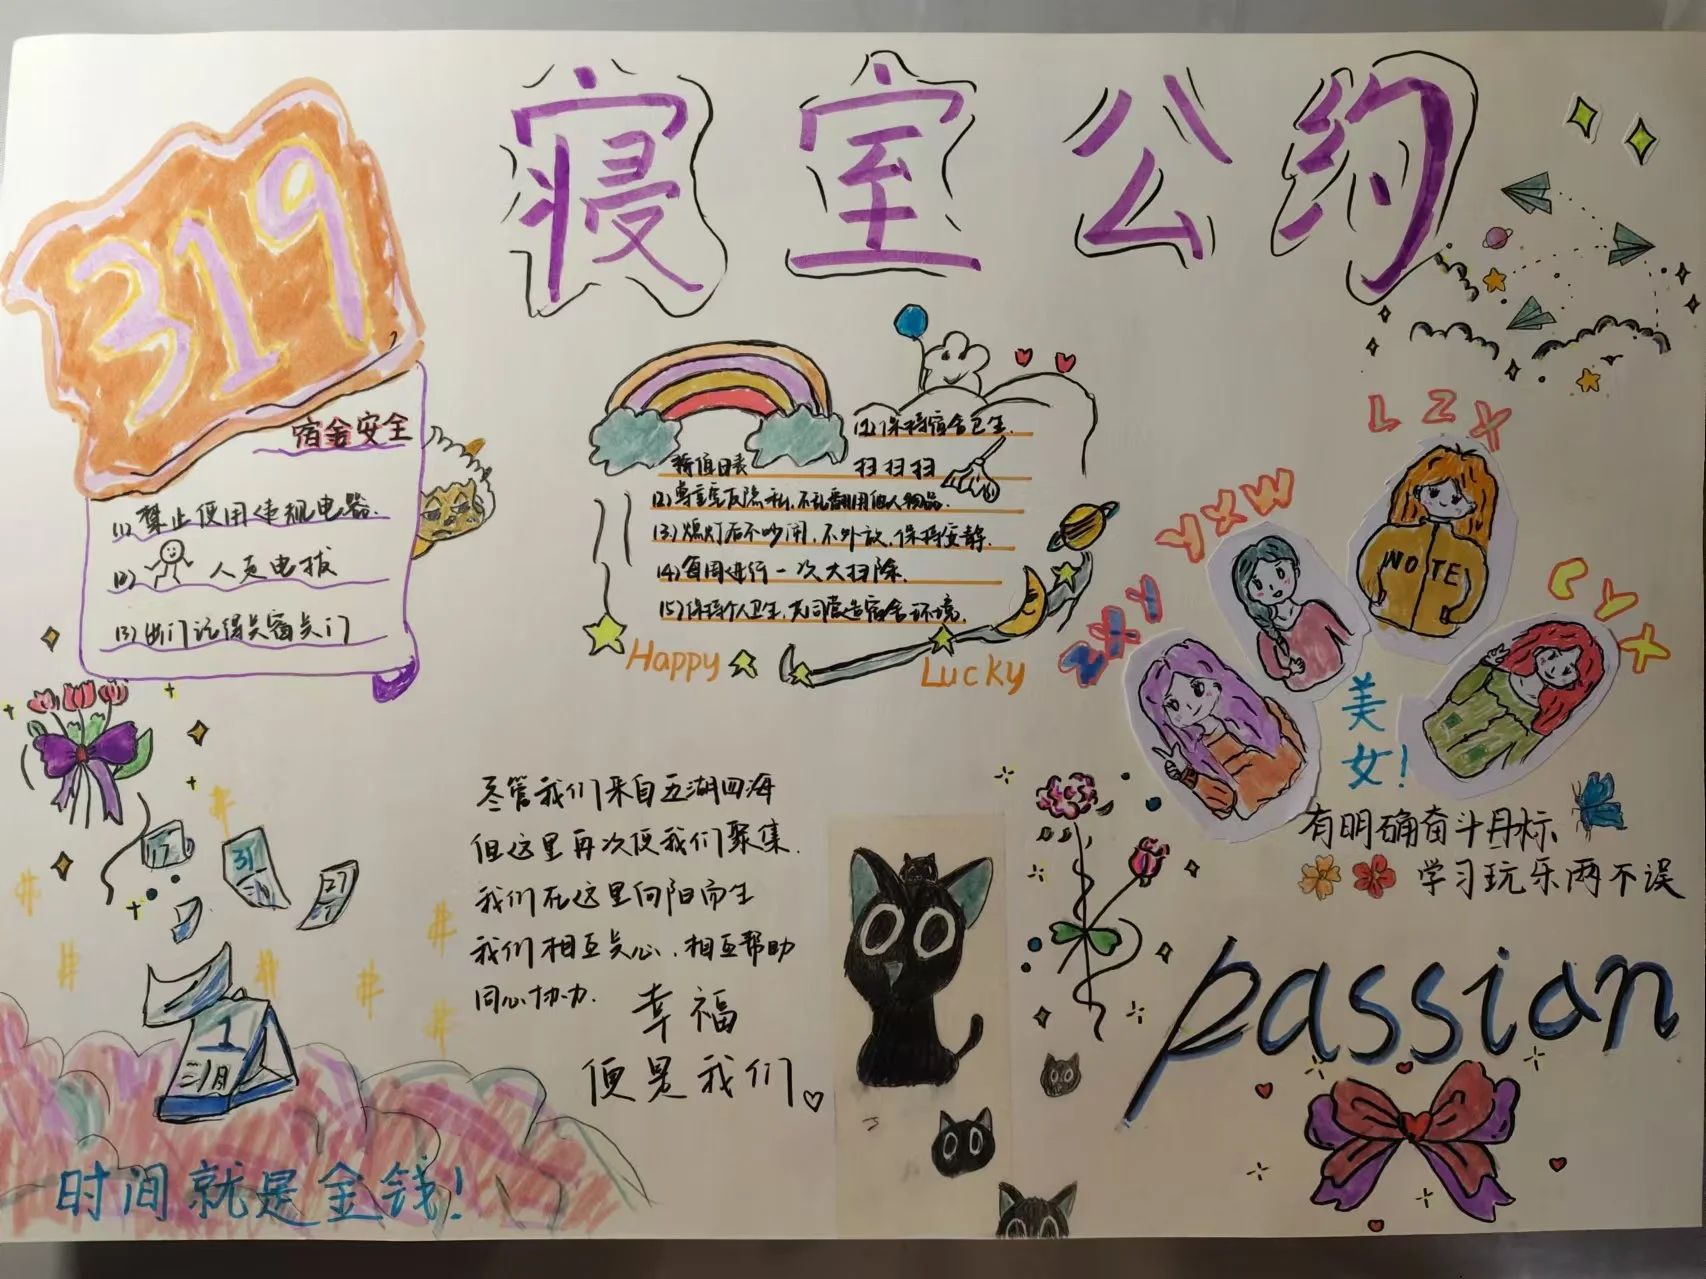 寝室公约
319
宿舍安全
(1) 禁止使用违规电器.
(2) 人走电拔
(3) 出门记得关窗关门
(1) 保持宿舍卫生.
按值日表 扫扫扫
(2) 尊重室友隐私,不乱翻用他人物品.
(3) 熄灯后不吵闹,不外放,保持安静.
(4) 每周进行一次大扫除.
(5) 保持个人卫生,共同营造宿舍环境.
Happy Lucky
LZX
YXW
ZXY
CYX
NOTE
美女!
有明确奋斗目标
学习玩乐两不误
passion
尽管我们来自五湖四海
但这里再次使我们聚集.
我们在这里向阳而生
我们相互关心.相互帮助
同心协力.
幸福
便是我们
17
31
27
1
三月
时间就是金钱!